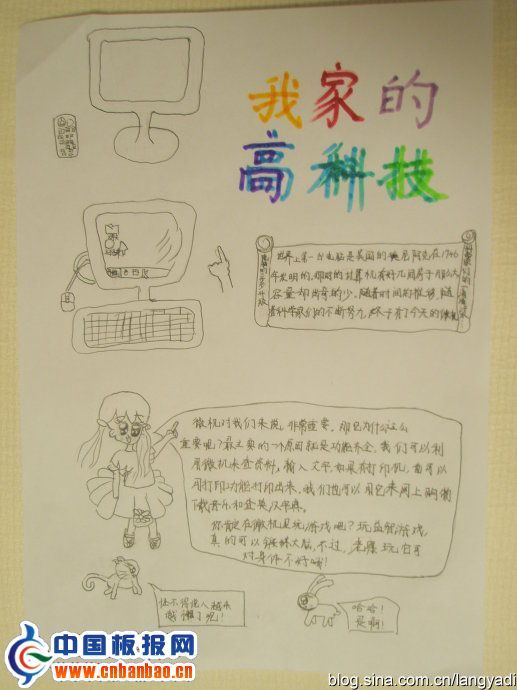 我家的
高科技
世界上第一台电脑是美国的埃尼阿克在1946
年发明的,那时的计算机有好几间房子那么大
容量却出奇的少,随着时间的推移,随
着科学家们的不断努力,终于有了今天的微机
微机对我们来说,非常重要,那它为什么这么
重要呢?最主要的一个原因就是功能齐全,我们可以利
用微机来查资料,输入文字,如果有打印机,直可以
用打印功能打印出来,我们也可以用它来网上购物
下载音乐和查英汉字典。
你肯定在微机里玩游戏吧?玩益智游戏,
真的可以锻炼大脑,不过,老源玩它可
对身体不好哟!
怪不得他人越来
越懒了呢!
哈哈!
是啊!
中国板报网
www.cnbanbao.cn
blog.sina.com.cn/langyadi